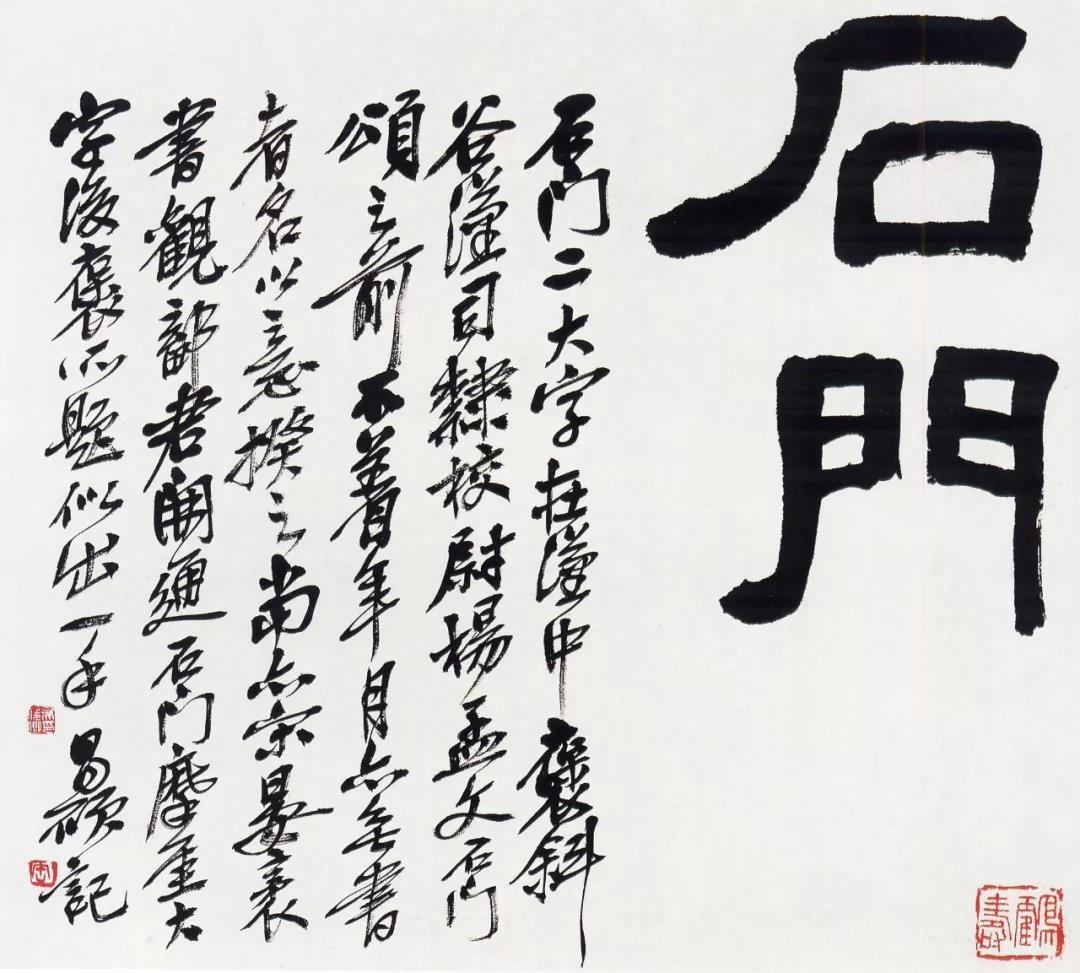 石門
石門二大字在漢中褒斜
谷漢司隸校尉楊孟文石門
頌之前不著年月亦無書
者名以意揆之當亦宋晏袤
書觀鄐君開通石門摩厓大
字後所題似出一手 昌碩記